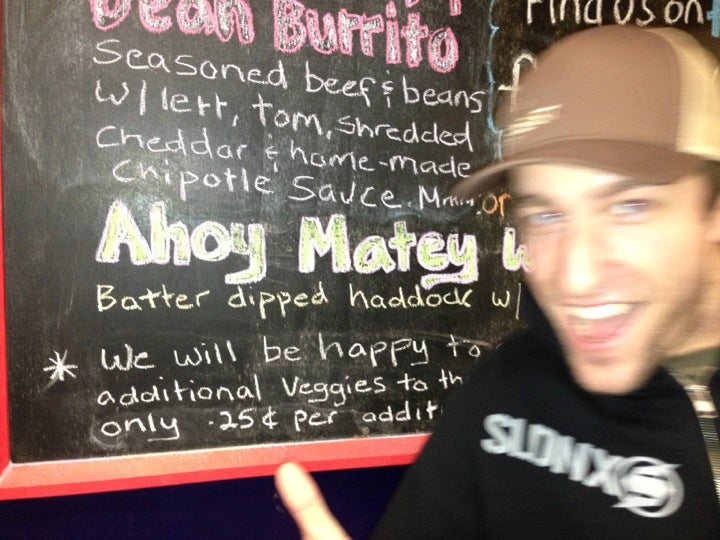 Bean Burrito
Find us on
Seasoned beef & beans
w/ lett, tom, shredded
Cheddar & home-made
Chipotle Sauce. Mmm. or
Ahoy Matey w
Batter dipped haddock w/
* We will be happy to
additional Veggies to th
only .25¢ per addit
SLDNX